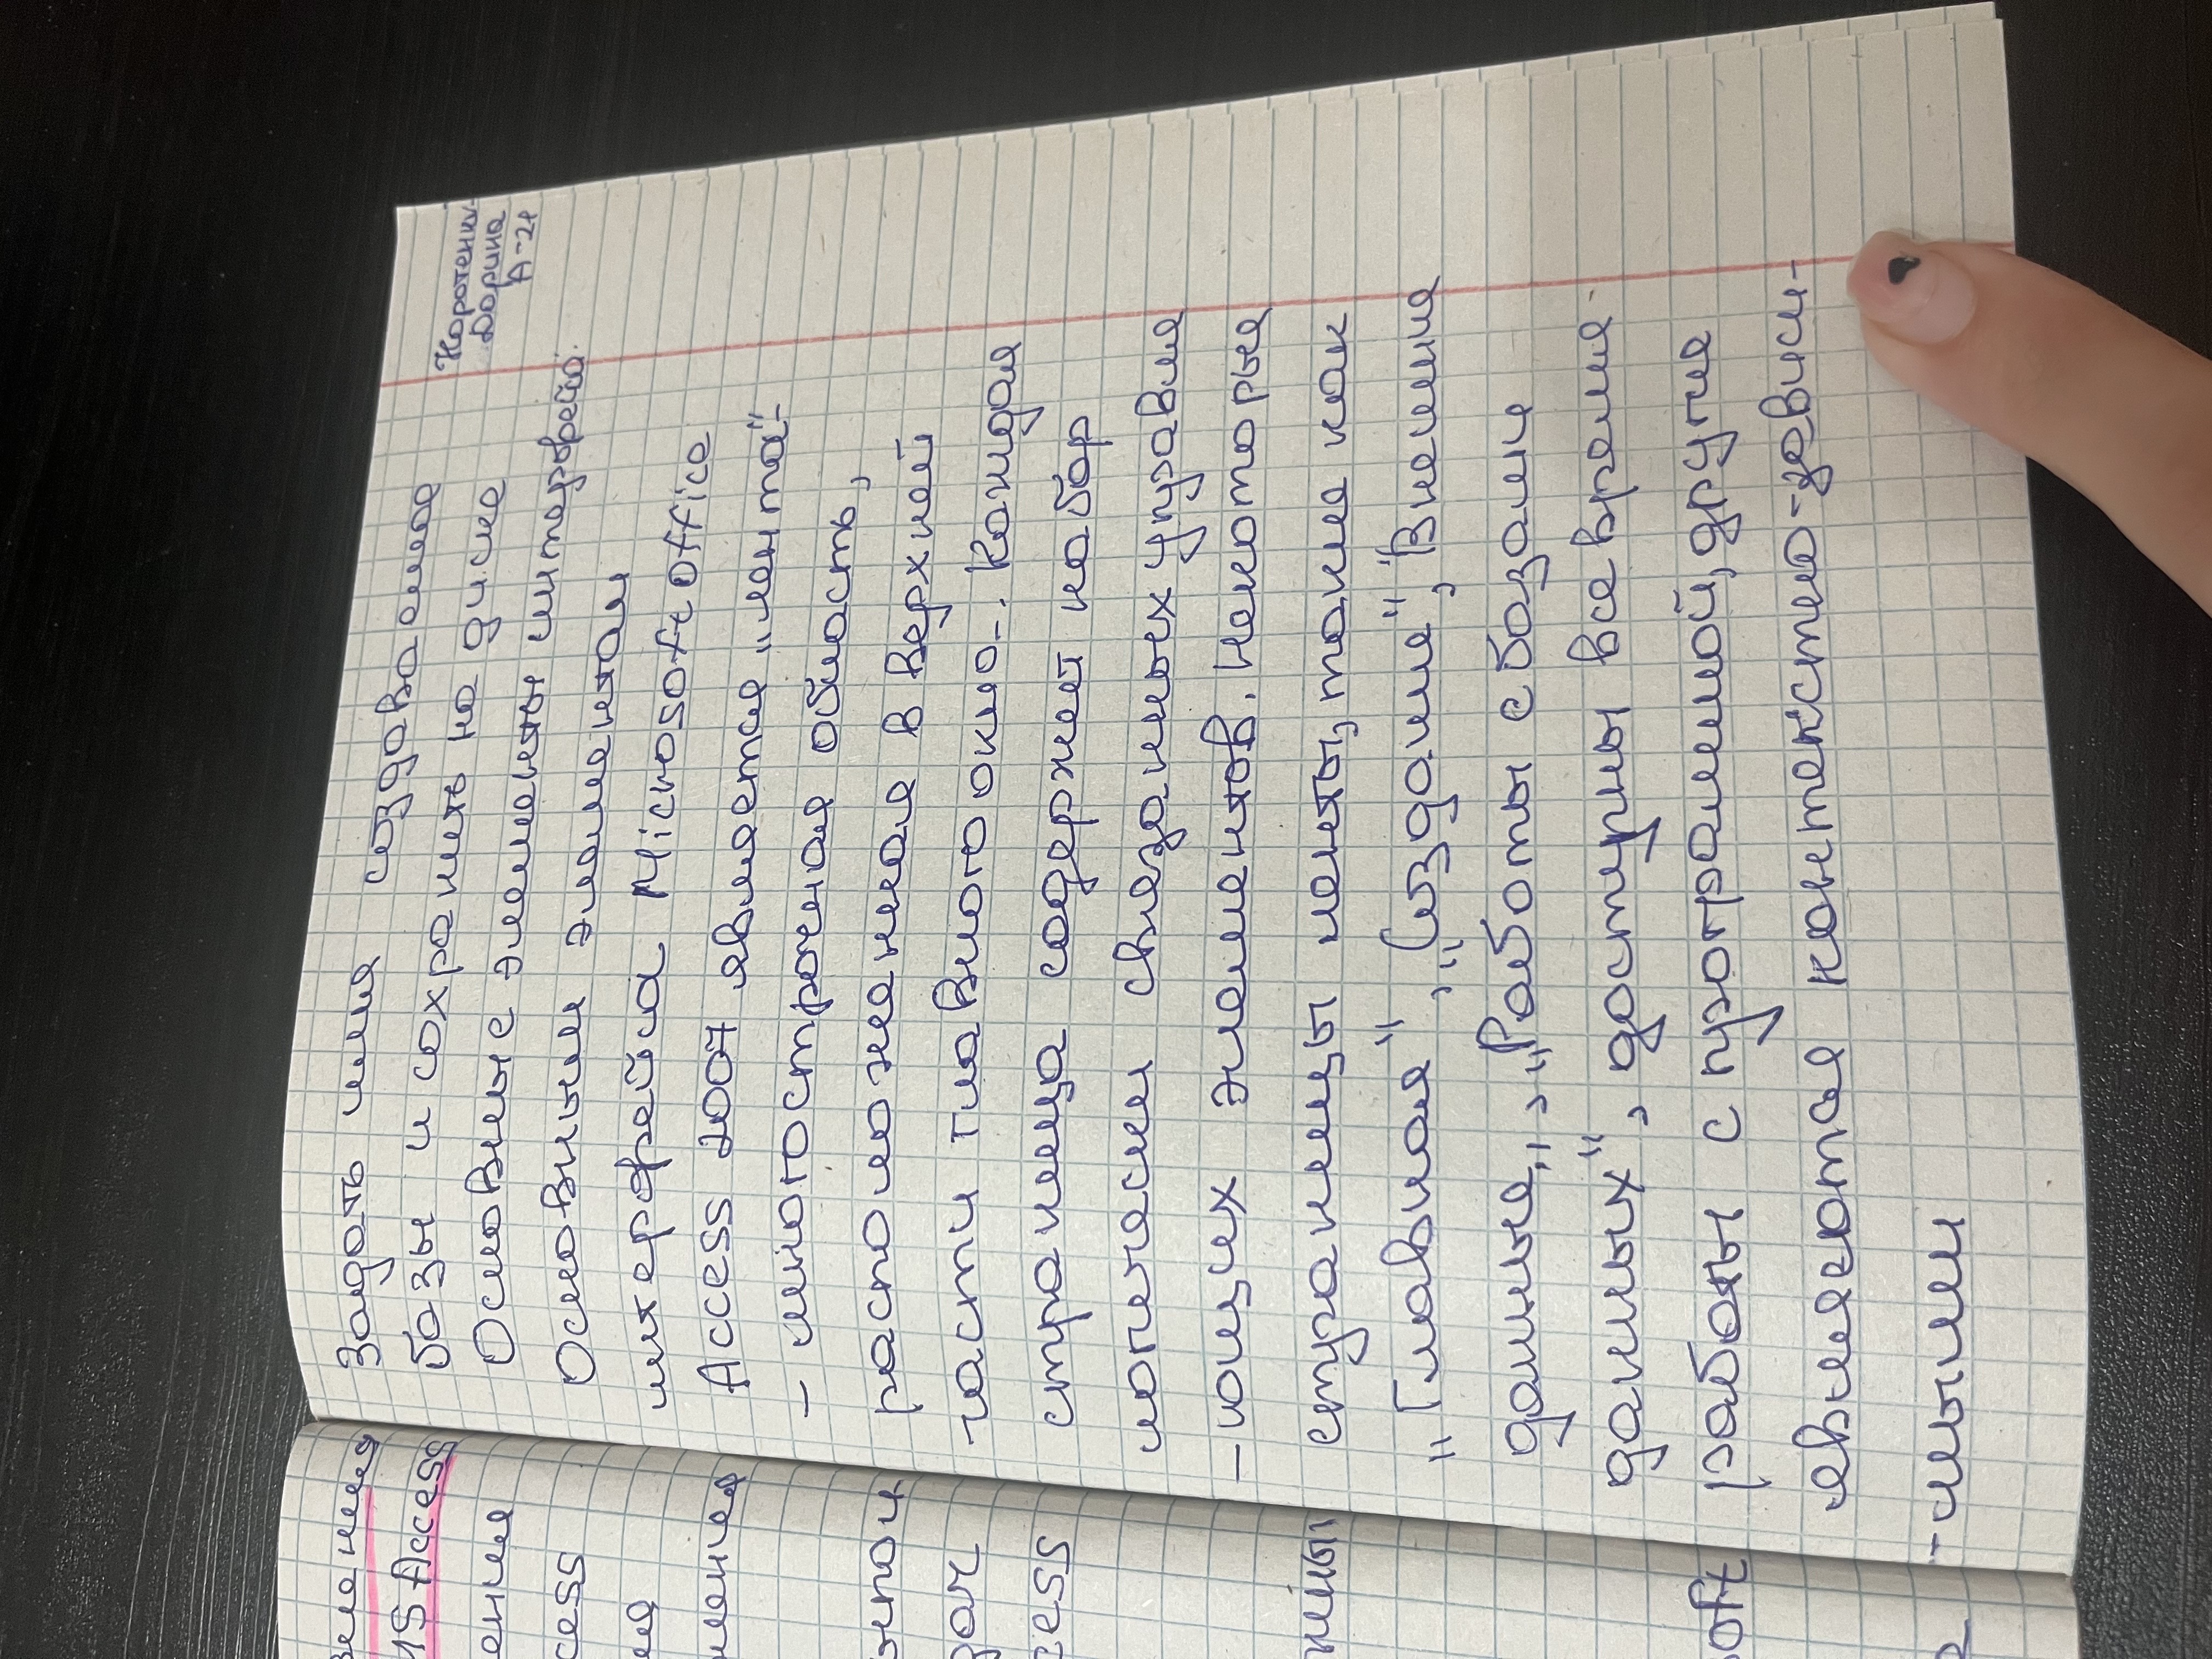 Коротенку
Дорина
А-21
Задать имя создаваемое
базы и сохранить на диске
Основные элементы интерфейса.
Основными элементам
интерфейса Microsoft Office
Access 2007 является "лента"-
- многостроченая область,
расположенная в верхней
части главного окно-. Каждая
страница содержет набор
логически связанных управля
-ющих элементов. Некоторые
страницы ленты, такие как
"Главная", "Создание", "Внешние
данные", "Работы с базами
данных", доступны все время
работы с программой, другие
являются контекстно-зависи-
-мыми
15 Access
ение
cess
cess